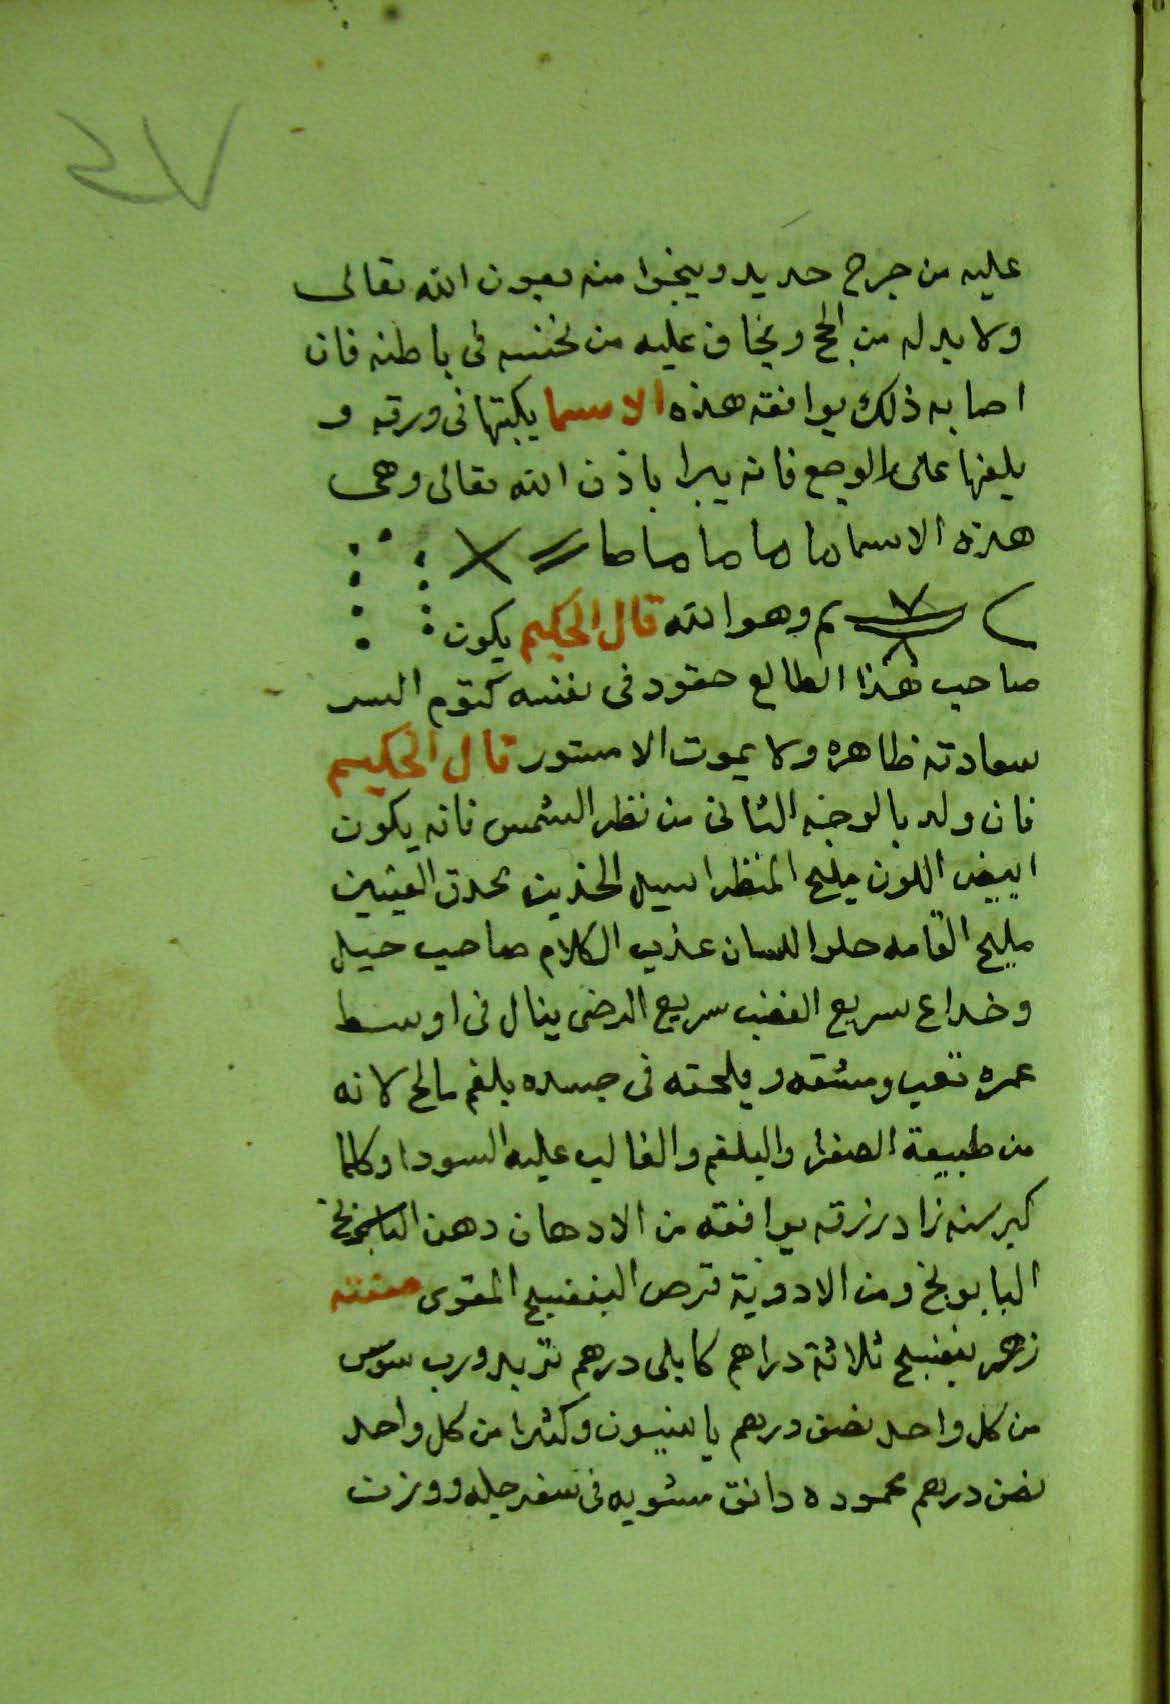 عليه من جرح حديد وينجوا منه بعون الله تعالى
ولا بد له من الحج ويخاف عليه من نخسه فى باطنه فان
اصابه ذلك يوافقه هذه الاسما يكتبها فى ورقه و
يلغها على الوجع فانه يبرا باذن الله تعالى وهى
هذه الاسما
وهو الله قال الحكيم يكون
صاحب هذا الطالع حقود فى نفسه كتوم السر
سعادته ظاهره ولا يموت الا مستور قال الحكيم
فان ولد بالوجه الثانى من نظر الشمس فانه يكون
ابيض اللون مليح المنظر اسيل الخدين محدق العينين
مليح القامه حلو اللسان عذب الكلام صاحب حيل
وخداع سريع الغضب سريع الرضى ينال فى اوسط
عمره تعب ومشقه ويلحقه فى جسده بلغم مالح لانه
من طبيعة الصفرا والبلغم والغالب عليه السودا وكلما
كبر سنه زاد رزقه يوافقه من الادهان دهن
البابونج ومن الادوية قرص البنفسج المقوى صفته
زهر بنفسج ثلاثة دراهم كابلى درهم تربد ورب سوس
من كل واحد نصف درهم يانسون وكثيرا من كل واحد
نصف درهم محموده دانق مشويه فى سفرجله ووزن